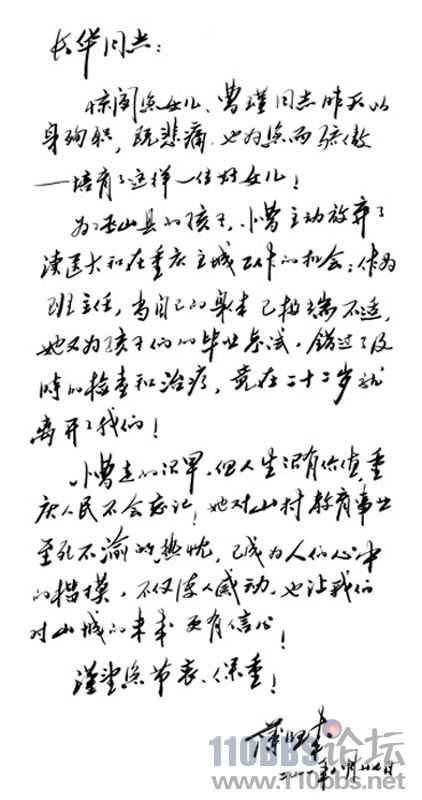 长华同志：
惊闻您女儿、曹瑾同志昨天以
身殉职，既悲痛，也为您而骄傲
——培育了这样一位好女儿！
为了巫山县的孩子，小曹主动放弃了
读医大和在重庆主城工作的机会；作为
班主任，当自己的身体已极端不适，
她又为孩子们的毕业考试，错过了及
时的检查和治疗，竟在二十二岁就
离开了我们！
小曹走的很早，但人生很有价值，重
庆人民不会忘记！她对山村教育事业
至死不渝的热忱，已成为人们心中
的楷模，不仅使人感动，也让我们
对山城的未来更有信心！
谨望您节哀、保重！
薄熙来
110BBS论坛
www.110bbs.net